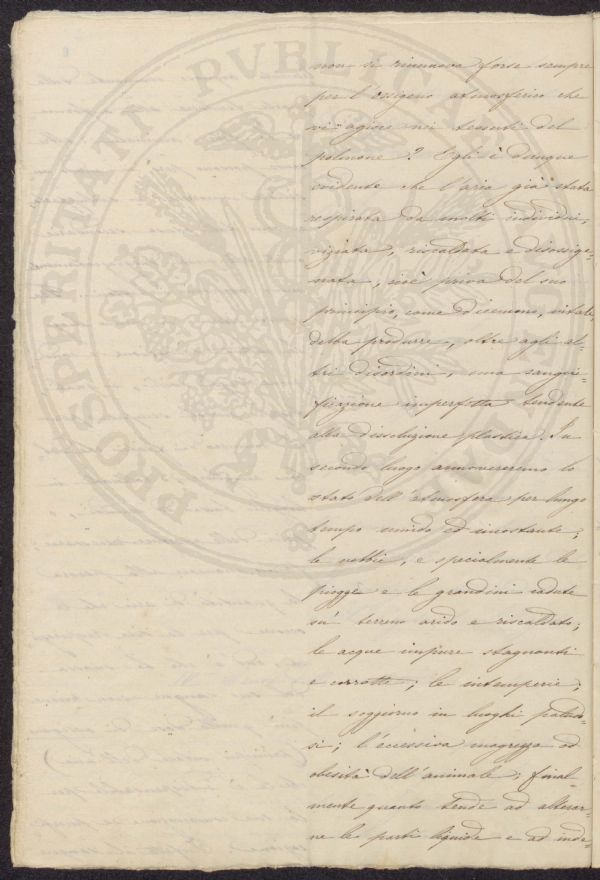 non si rinnova forse sempre
per l'ossigeno atmosferico che
vi agisce nei tessuti del
polmone? Egli è dunque
evidente che l'aria già stata
respirata da molti individui,
viziata, riscaldata e disossige-
nata, cioè priva del suo
principio, come dicemmo, vitale
debba produrre, oltre agli al-
tri disordini, una sangui-
ficazione imperfetta tendente
alla dissoluzione plastica. In
secondo luogo annovereremo lo
stato dell'atmosfera per lungo
tempo umido ed incostante;
le nebbie, e specialmente le
piogge e le grandini cadute
su terreno arido e riscaldato;
le acque impure stagnanti
e corrotte; le intemperie;
il soggiorno in luoghi paludo-
si; l'eccessiva magrezza od
obesità dell'animale; final-
mente quanto tende ad alterar-
ne le parti liquide e ad inde-
PROSPERITATI PVBLICAE